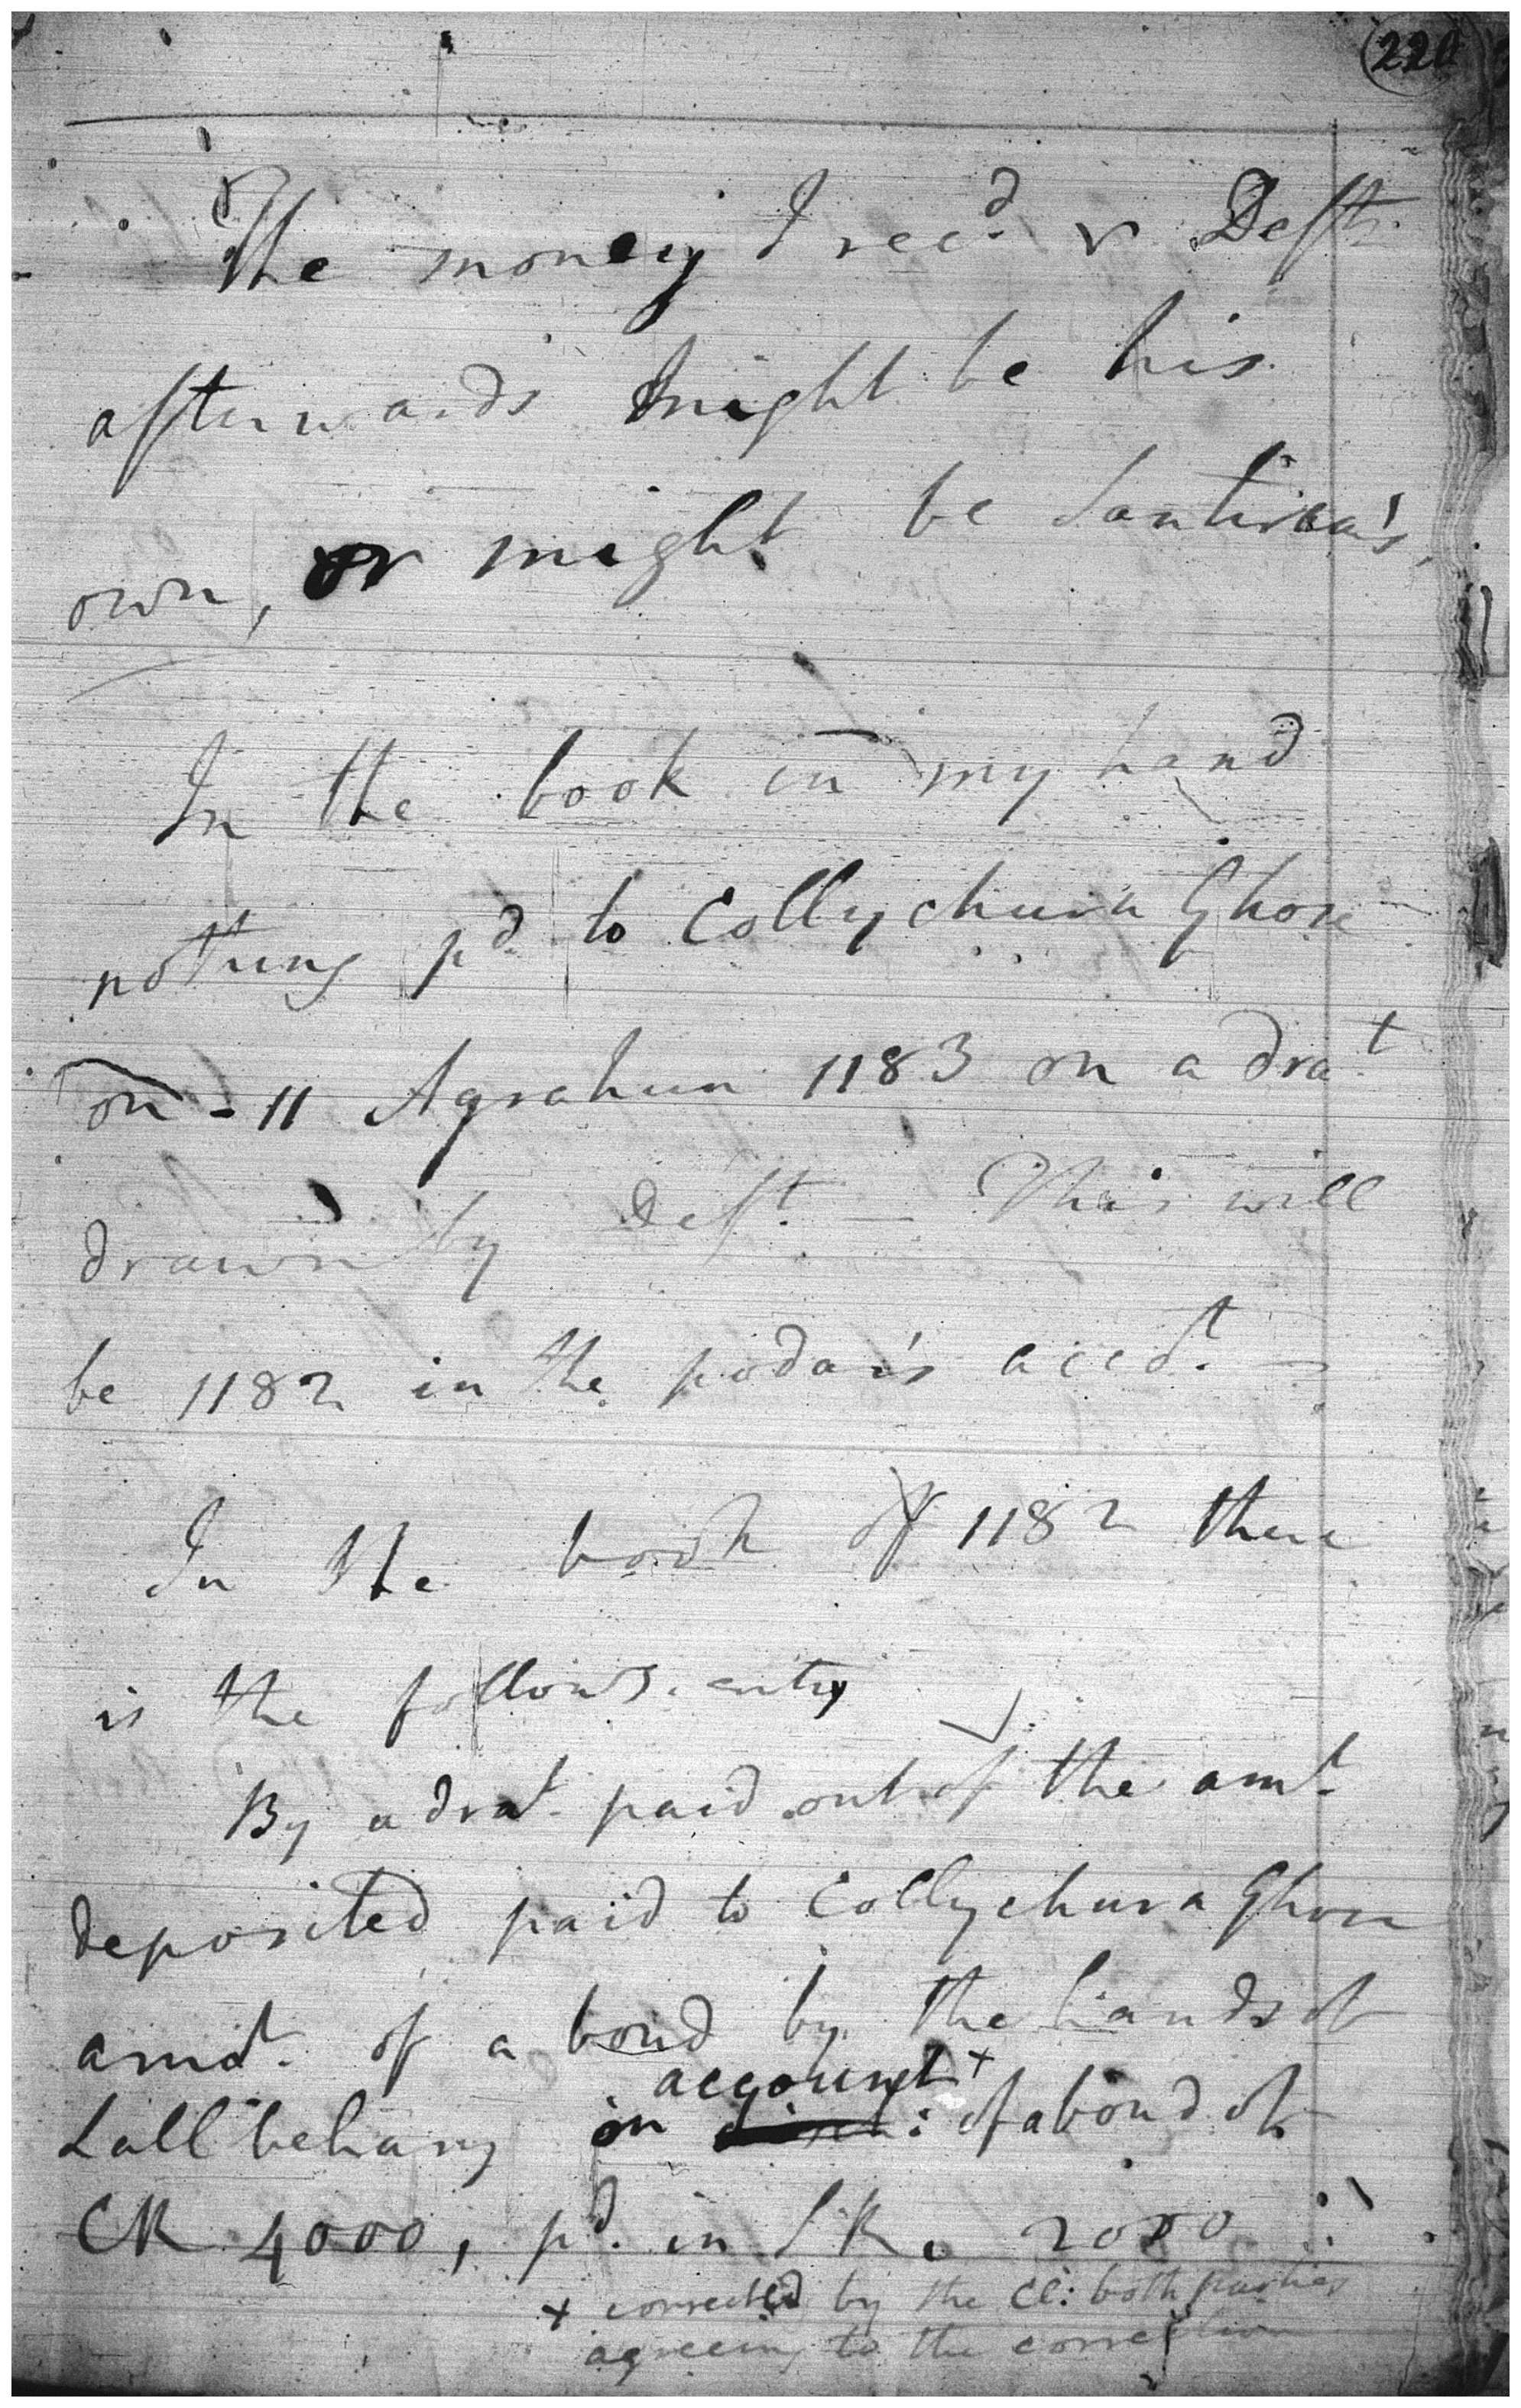 (220
The money I recd. v Deft.
afterwards might be his
own, or might be Santiram's,
In the book in my hand
nothing pd. to Collychurn Ghose
on - 11 Agrahun 1183 on a drat.
drawn by Deft. — This will
be 1182 in the podar's acct. —
In the book of 1182 there
is the follows. entry
By a drat. paid out of the amt.
deposited paid to Collychurn Ghose
amt. of a bond by the hands of
Lallbehary in account + of a bond of
CR 4000, pd. in SR. 2000
+ corrected by the Ct: both parties
agreeing to the correction